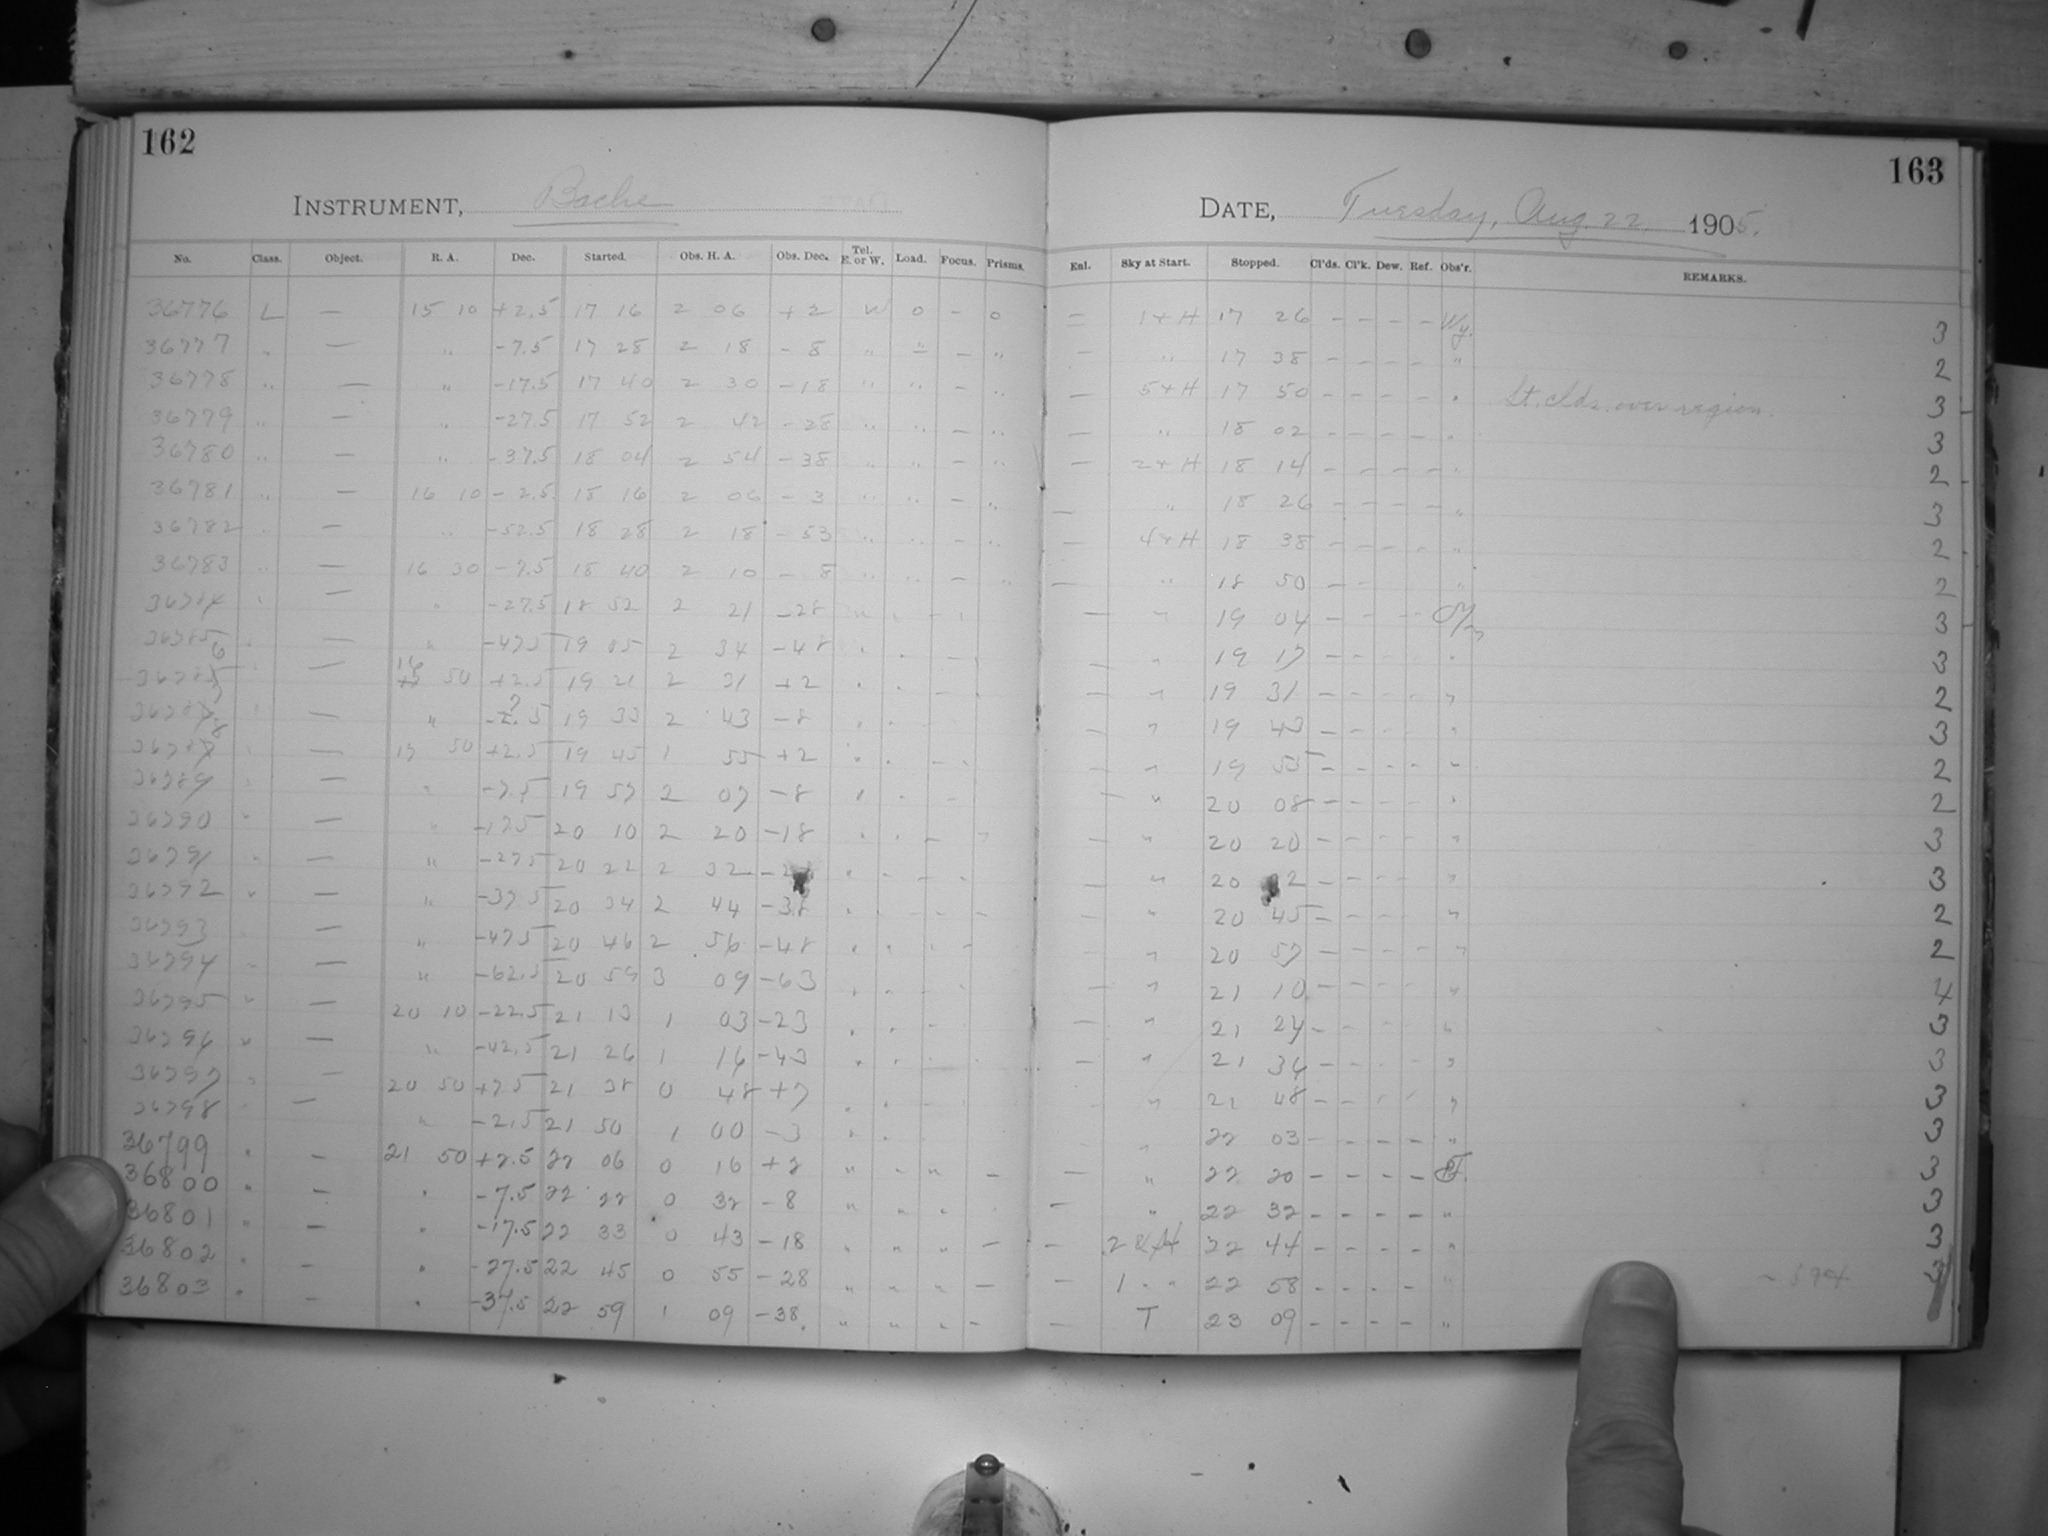 162
163
INSTRUMENT, Bache
DATE, Tuesday, Aug. 22, 1905.
No. Class. Object. R. A. Dec. Started. Obs. H. A. Obs. Dec. Tel. E. or W. Load. Focus. Prisms. Enl. Sky at Start. Stopped. Cl'ds. Cl'k. Dew. Ref. Obs'r. REMARKS.
36776 L — 15 10 +2.5 17 16 2 06 +2 W 0 – 0 = 1+H 17 26 – – – – Wy. 3
36777 " — " -7.5 17 28 2 18 -8 " " – " – " 17 38 – – – – " 2
36778 " — " -17.5 17 40 2 30 -18 " " – " – 5+H 17 50 – – – – " St. clds. over region. 3
36779 " — " -27.5 17 52 2 42 -28 " " – " – " 18 02 – – – – " 3
36780 " — " -37.5 18 04 2 54 -38 " " – " – 2+H 18 14 – – – – " 2
36781 " — 16 10 -2.5 18 16 2 06 -3 " " – " – " 18 26 – – – – " 3
36782 " — " -52.5 18 28 2 18 -53 " " – " – 4+H 18 38 – – – – " 2
36783 " — 16 30 -7.5 18 40 2 10 -8 " " – " – " 18 50 – – " 2
36784 " — " -27.5 18 52 2 21 -28 " " – " – " 19 04 – – – – 3
36785 " — " -47.5 19 05 2 34 -48 " " – – " 19 17 – – – – " 3
36786 " — 16 50 +2.5 19 21 2 31 +2 " " – – " 19 31 – – – – " 2
36787 " — " -7.5 19 33 2 43 -8 " " – " 19 43 – – – – " 3
36788 " — 17 50 +2.5 19 45 1 55 +2 " " – – – " 19 55 – – – – " 2
36789 " — " -7.5 19 57 2 07 -8 " " – – " 20 08 – – – – " 2
36790 " — " -17.5 20 10 2 20 -18 " " – " – " 20 20 – – – – " 3
36791 " — " -27.5 20 22 2 32 " " – – – " 20 – – – – " 3
36792 " — " -37.5 20 34 2 44 -38 " " – – – " 20 45 – – – – " 2
36793 — " -47.5 20 46 2 56 -48 " " – – " 20 57 – – – – " 2
36794 " — " -62.5 20 59 3 09 -63 " " – – " 21 10 – – – – " 4
36795 " — 20 10 -22.5 21 13 1 03 -23 " " – – " 21 24 – – – – " 3
36796 " — " -42.5 21 26 1 16 -43 " " – – " 21 36 – – – – " 3
36797 " — 20 50 +7.5 21 38 0 48 +7 " " – " 21 48 – – – – " 3
36798 " — " -2.5 21 50 1 00 -3 " " – " 22 03 – – – – " 3
36799 " – 21 50 +2.5 22 06 0 16 +2 " " " – – " 22 20 – – – – 3
36800 " – " -7.5 22 22 0 32 -8 " " " – – " 22 32 – – – – " 3
36801 " – " -17.5 22 33 0 43 -18 " " " – – 2 & H 22 44 – – – – " 3
36802 " – " -27.5 22 45 0 55 -28 " " " – – 1 " " 22 58 – – – – "
36803 " – " -37.5 22 59 1 09 -38 " " " – – T 23 09 – – – – "